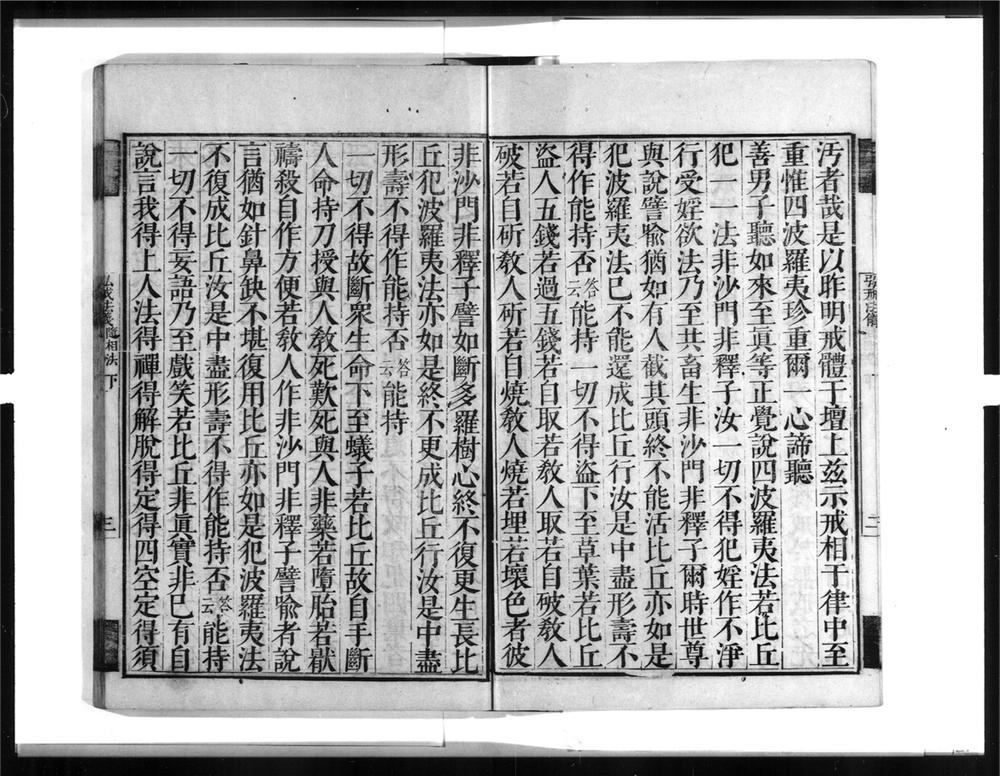 汚者哉是以昨明戒體于壇上兹示戒相于律中至
重惟四波羅夷珍重爾一心諦聽
善男子聽如來至眞等正覺說四波羅夷法若比丘
犯一一法非沙門非釋子汝一切不得犯婬作不淨
行受婬欲法乃至共畜生非沙門非釋子爾時世尊
與說譬喻猶如有人截其頭終不能活比丘亦如是
犯波羅夷法已不能還成比丘行汝是中盡形壽不
得作能持否答云能持一切不得盜下至草葉若比丘
盜人五錢若過五錢若自取若敎人取若自破敎人
破若自斫敎人斫若自燒敎人燒若埋若壞色者彼
非沙門非釋子譬如斷多羅樹心終不復更生長比
丘犯波羅夷法亦如是終不更成比丘行汝是中盡
形壽不得作能持否答云能持
一切不得故斷衆生命下至蟻子若比丘故自手斷
人命持刀授與人敎死歎死與人非藥若墮胎若厭
禱殺自作方便若敎人作非沙門非釋子譬喻者說
言猶如針鼻缺不堪復用比丘亦如是犯波羅夷法
不復成比丘汝是中盡形壽不得作能持否答云能持
一切不得妄語乃至戲笑若比丘非眞實非已有自
說言我得上人法得禪得解脫得定得四空定得須
隨相法 下
三